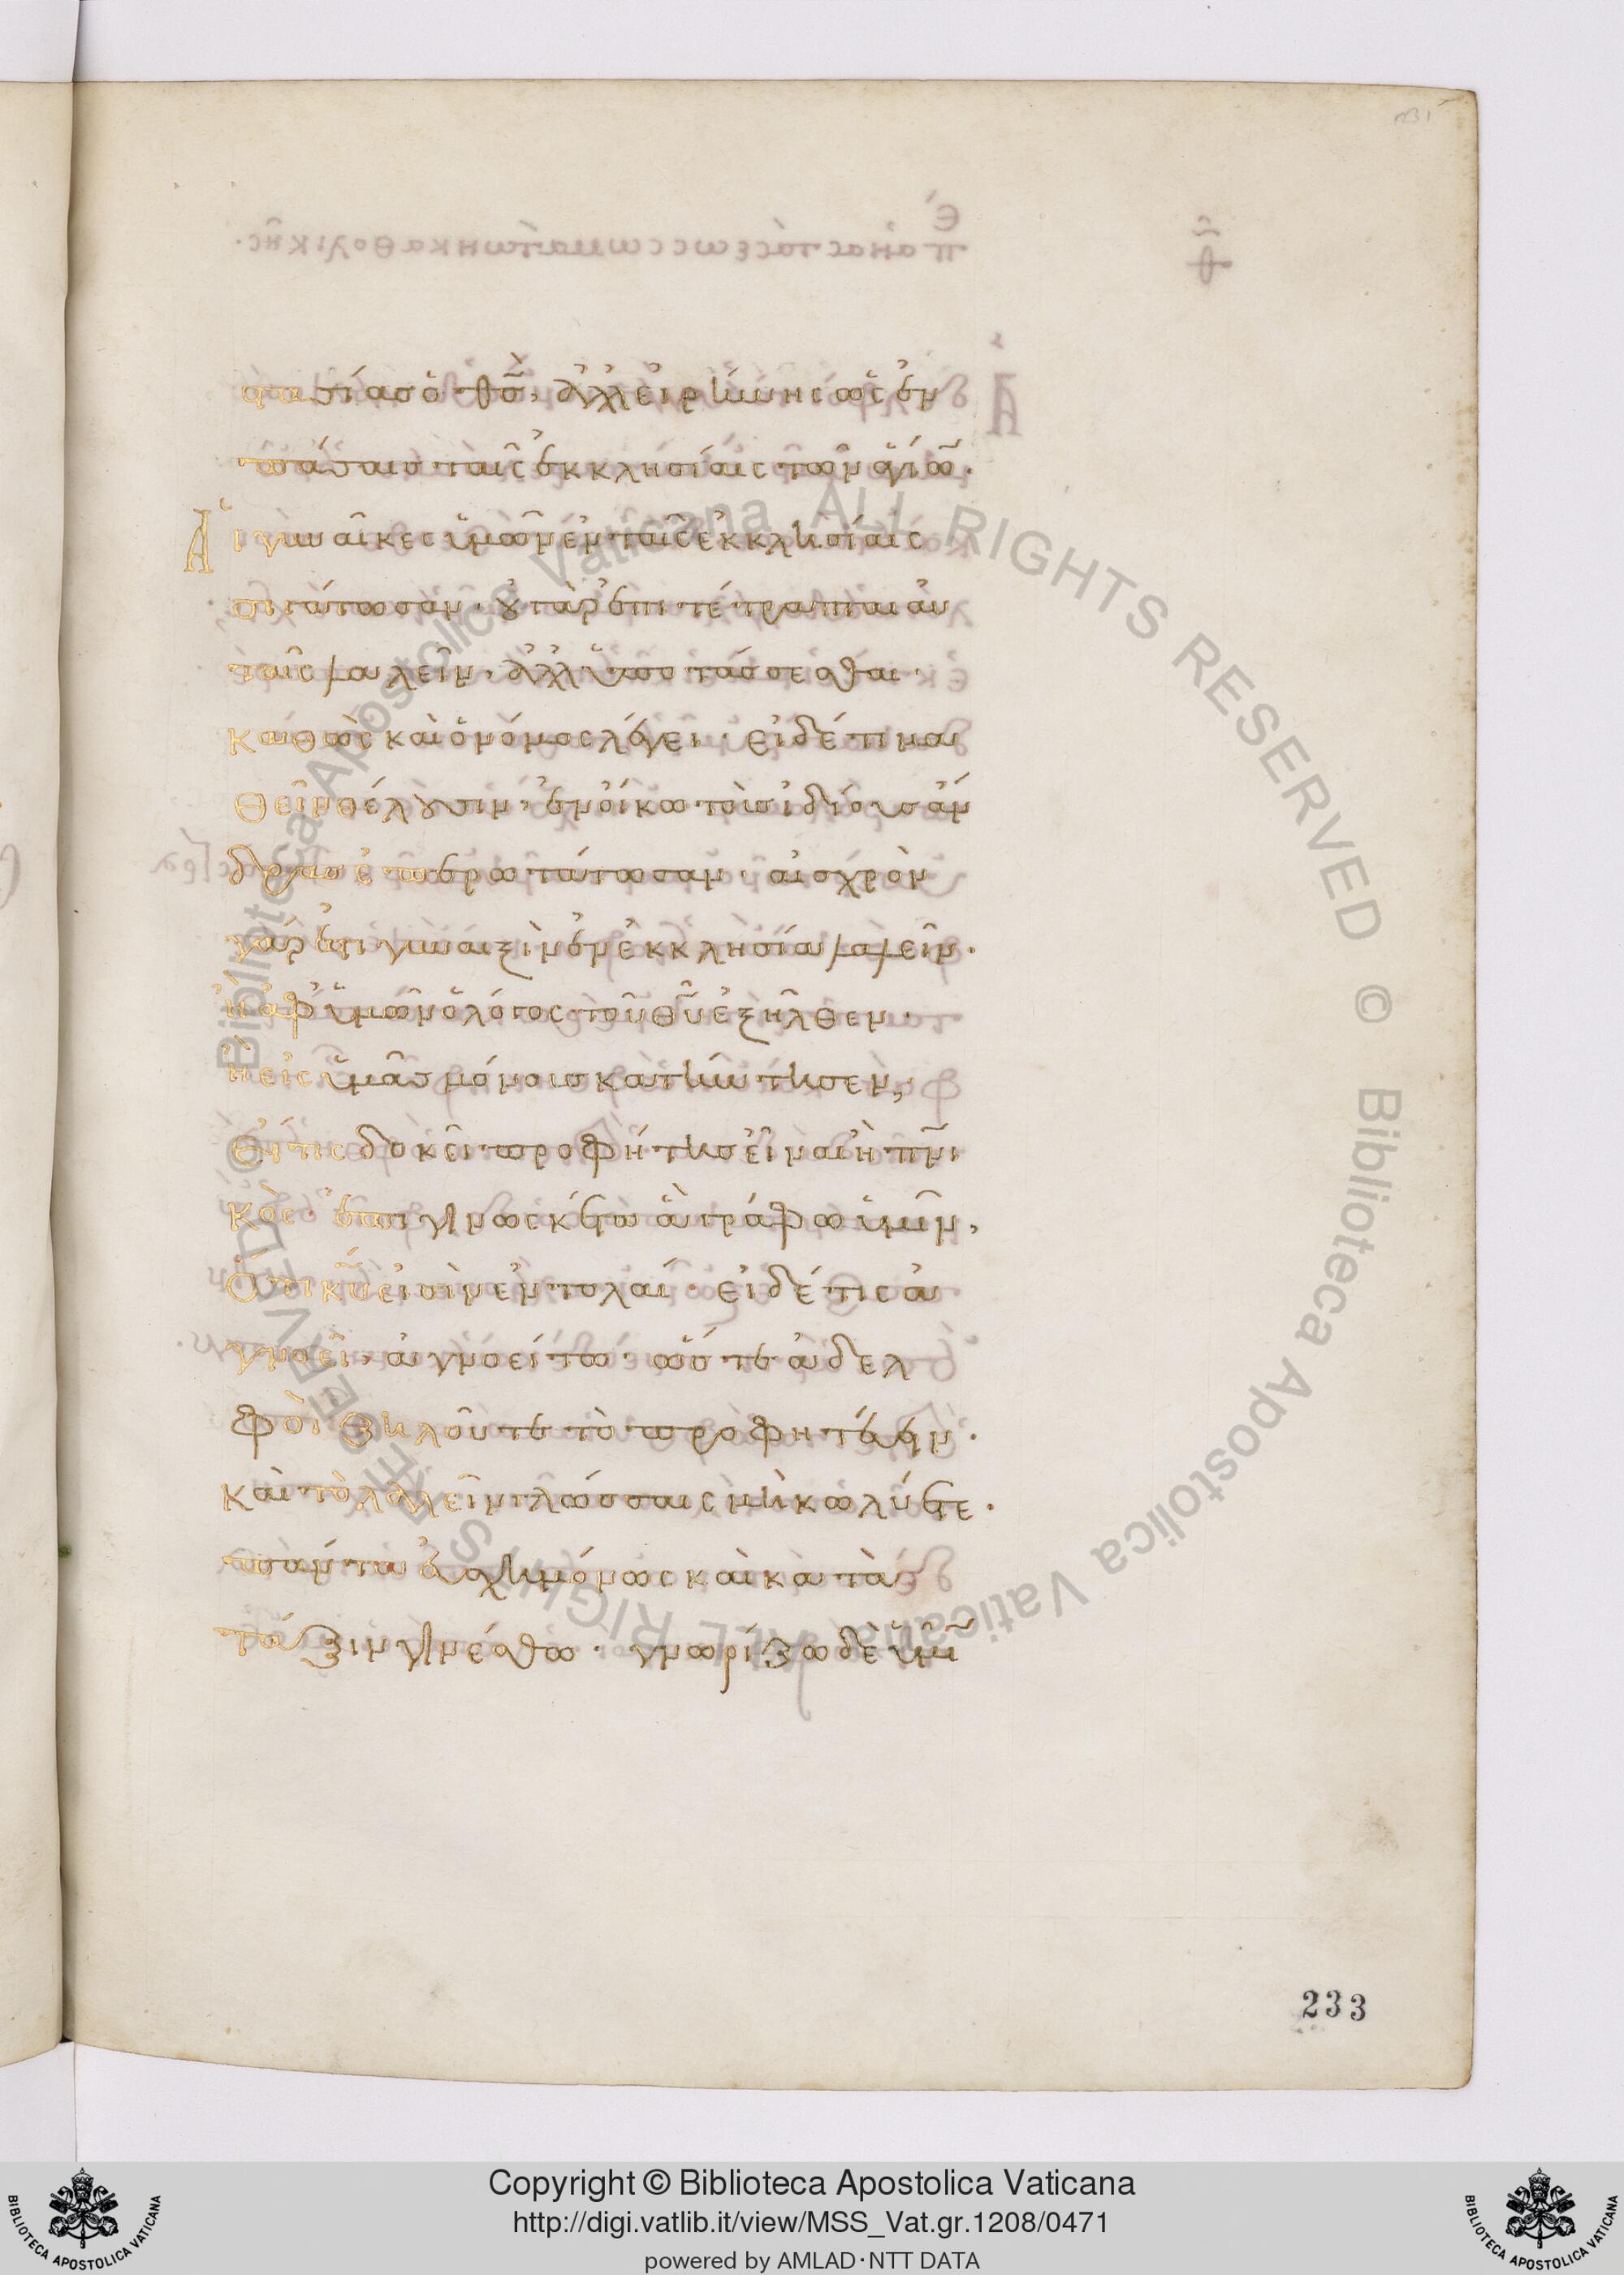 αστασίας ὁ θς̄, ἀλλ' εἰρήνης ὡς ἐν
πάσαις ταῖς ἐκκλησίαις τῶν ἁγίων.
Αἱ γυναῖκες ὑμῶν ἐν ταῖς ἐκκλησίαις
σιγάτωσαν. οὐ γὰρ ἐπιτέτραπται αὐ
ταῖς λαλεῖν, ἀλλ' ὑποτάσσεσθαι.
καθὼς καὶ ὁ νόμος λέγει. εἰ δέ τι μα
θεῖν θέλουσιν, ἐν οἴκω τοὺς ἰδίους ἄν
δρας ἐπερωτάτωσαν. αἰσχρὸν
γάρ ἐστι γυναιξὶν ἐν ἐκκλησία λαλεῖν.
ἢ ἀφ' ὑμῶν ὁ λόγος τοῦ θῡ ἐξῆλθεν.
ἢ εἰς ὑμᾶς μόνους κατήντησεν;
Εἴ τις δοκεῖ προφήτης εἶναι ἢ πν̄ι
κὸς. ἐπιγινωσκέτω ἃ γράφω ὑμῖν,
ὅτι κῡ εἰσὶν ἐντολαί. εἰ δέ τις ἀ
γνοεῖ, ἀγνοείτω. ὥστε ἀδελ
φοὶ ζηλοῦτε τὸ προφητεύειν.
καὶ τὸ λαλεῖν γλώσσαις μὴ κωλύετε.
πάντα εὐσχημόνως καὶ κατὰ
τάξιν γινέσθω. γνωρίζω δὲ ὑμῖν
233
Biblioteca Apostolica Vaticana ALL RIGHTS RESERVED © Biblioteca Apostolica Vaticana ALL RIGHTS RESERVED ©
Copyright © Biblioteca Apostolica Vaticana
http://digi.vatlib.it/view/MSS_Vat.gr.1208/0471
powered by AMLAD·NTT DATA
BIBLIOTECA APOSTOLICA VATICANA
BIBLIOTECA APOSTOLICA VATICANA